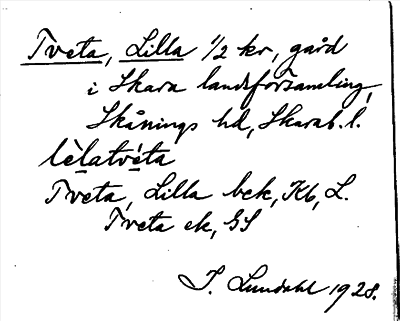 Tveta, Lilla 1/2 kr, gård
i Skara landsförsamling,
Skånings hd, Skarab. l.
lèlatvéta
Tveta, Lilla bek, Kb, L.
Tveta ek, GS
I. Lundahl 1928.